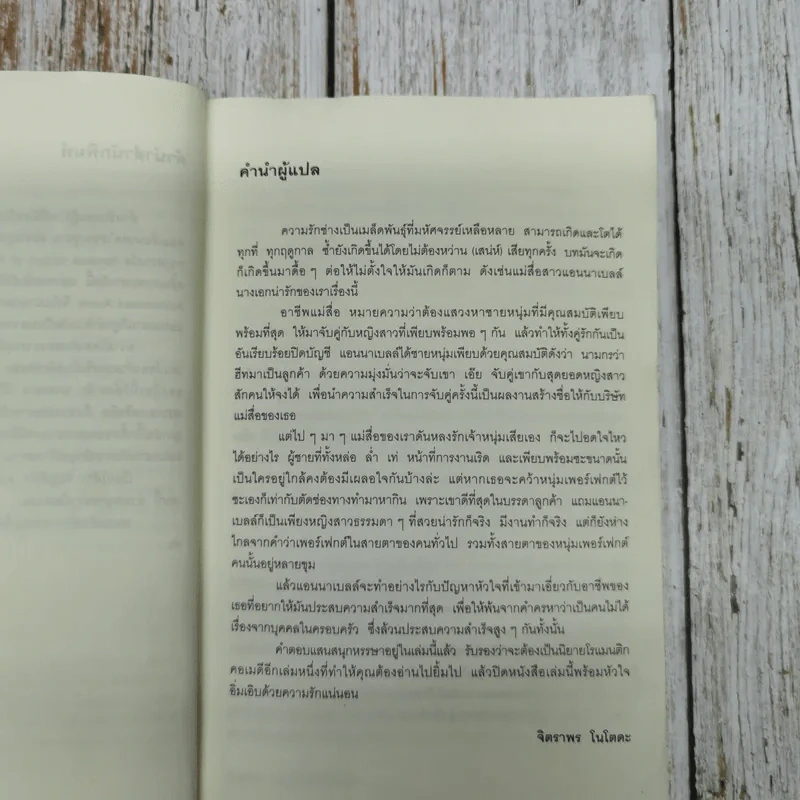 คำนำผู้แปล
ความรักช่างเป็นเมล็ดพันธุ์ที่มหัศจรรย์เหลือหลาย สามารถเกิดและโตได้
ทุกที่ ทุกฤดูกาล ซ้ำยังเกิดขึ้นได้โดยไม่ต้องหว่าน (เสน่ห์) เสียทุกครั้ง บทมันจะเกิด
ก็เกิดขึ้นมาดื้อ ๆ ต่อให้ไม่ตั้งใจให้มันเกิดก็ตาม ดังเช่นแม่สื่อสาวแอนนาเบลล์
นางเอกน่ารักของเราเรื่องนี้
อาชีพแม่สื่อ หมายความว่าต้องแสวงหาชายหนุ่มที่มีคุณสมบัติเพียบ
พร้อมที่สุด ให้มาจับคู่กับหญิงสาวที่เพียบพร้อมพอ ๆ กัน แล้วทำให้ทั้งคู่รักกันเป็น
อันเรียบร้อยปิดบัญชี แอนนาเบลล์ได้ชายหนุ่มเพียบด้วยคุณสมบัติดังว่า นามกรว่า
ฮีทมาเป็นลูกค้า ด้วยความมุ่งมั่นว่าจะจับเขา เอ๊ย จับคู่เขากับสุดยอดหญิงสาว
สักคนให้จงได้ เพื่อนำความสำเร็จในการจับคู่ครั้งนี้เป็นผลงานสร้างชื่อให้กับบริษัท
แม่สื่อของเธอ
แต่ไป ๆ มา ๆ แม่สื่อของเราดันหลงรักเจ้าหนุ่มเสียเอง ก็จะไปอดใจไหว
ได้อย่างไร ผู้ชายที่ทั้งหล่อ ล่ำ เท่ หน้าที่การงานเริด และเพียบพร้อมซะขนาดนั้น
เป็นใครอยู่ใกล้คงต้องมีเผลอใจกันบ้างล่ะ แต่หากเธอจะคว้าหนุ่มเพอร์เฟกต์ไว้
ซะเองก็เท่ากับตัดช่องทางทำมาหากิน เพราะเขาดีที่สุดในบรรดาลูกค้า แถมแอนนา-
เบลล์ก็เป็นเพียงหญิงสาวธรรมดา ๆ ที่สวยน่ารักก็จริง มีงานทำก็จริง แต่ก็ยังห่าง
ไกลจากคำว่าเพอร์เฟกต์ในสายตาของคนทั่วไป รวมทั้งสายตาของหนุ่มเพอร์เฟกต์
คนนั้นอยู่หลายขุม
แล้วแอนนาเบลล์จะทำอย่างไรกับปัญหาหัวใจที่เข้ามาเอี่ยวกับอาชีพของ
เธอที่อยากให้มันประสบความสำเร็จมากที่สุด เพื่อให้พ้นจากคำครหาว่าเป็นคนไม่ได้
เรื่องจากบุคคลในครอบครัว ซึ่งล้วนประสบความสำเร็จสูง ๆ กันทั้งนั้น
คำตอบแสนสนุกหรรษาอยู่ในเล่มนี้แล้ว รับรองว่าจะต้องเป็นนิยายโรแมนติก
คอเมดีอีกเล่มหนึ่งที่ทำให้คุณต้องอ่านไปยิ้มไป แล้วปิดหนังสือเล่มนี้พร้อมหัวใจ
อิ่มเอิบด้วยความรักแน่นอน
จิตราพร โนโตดะ